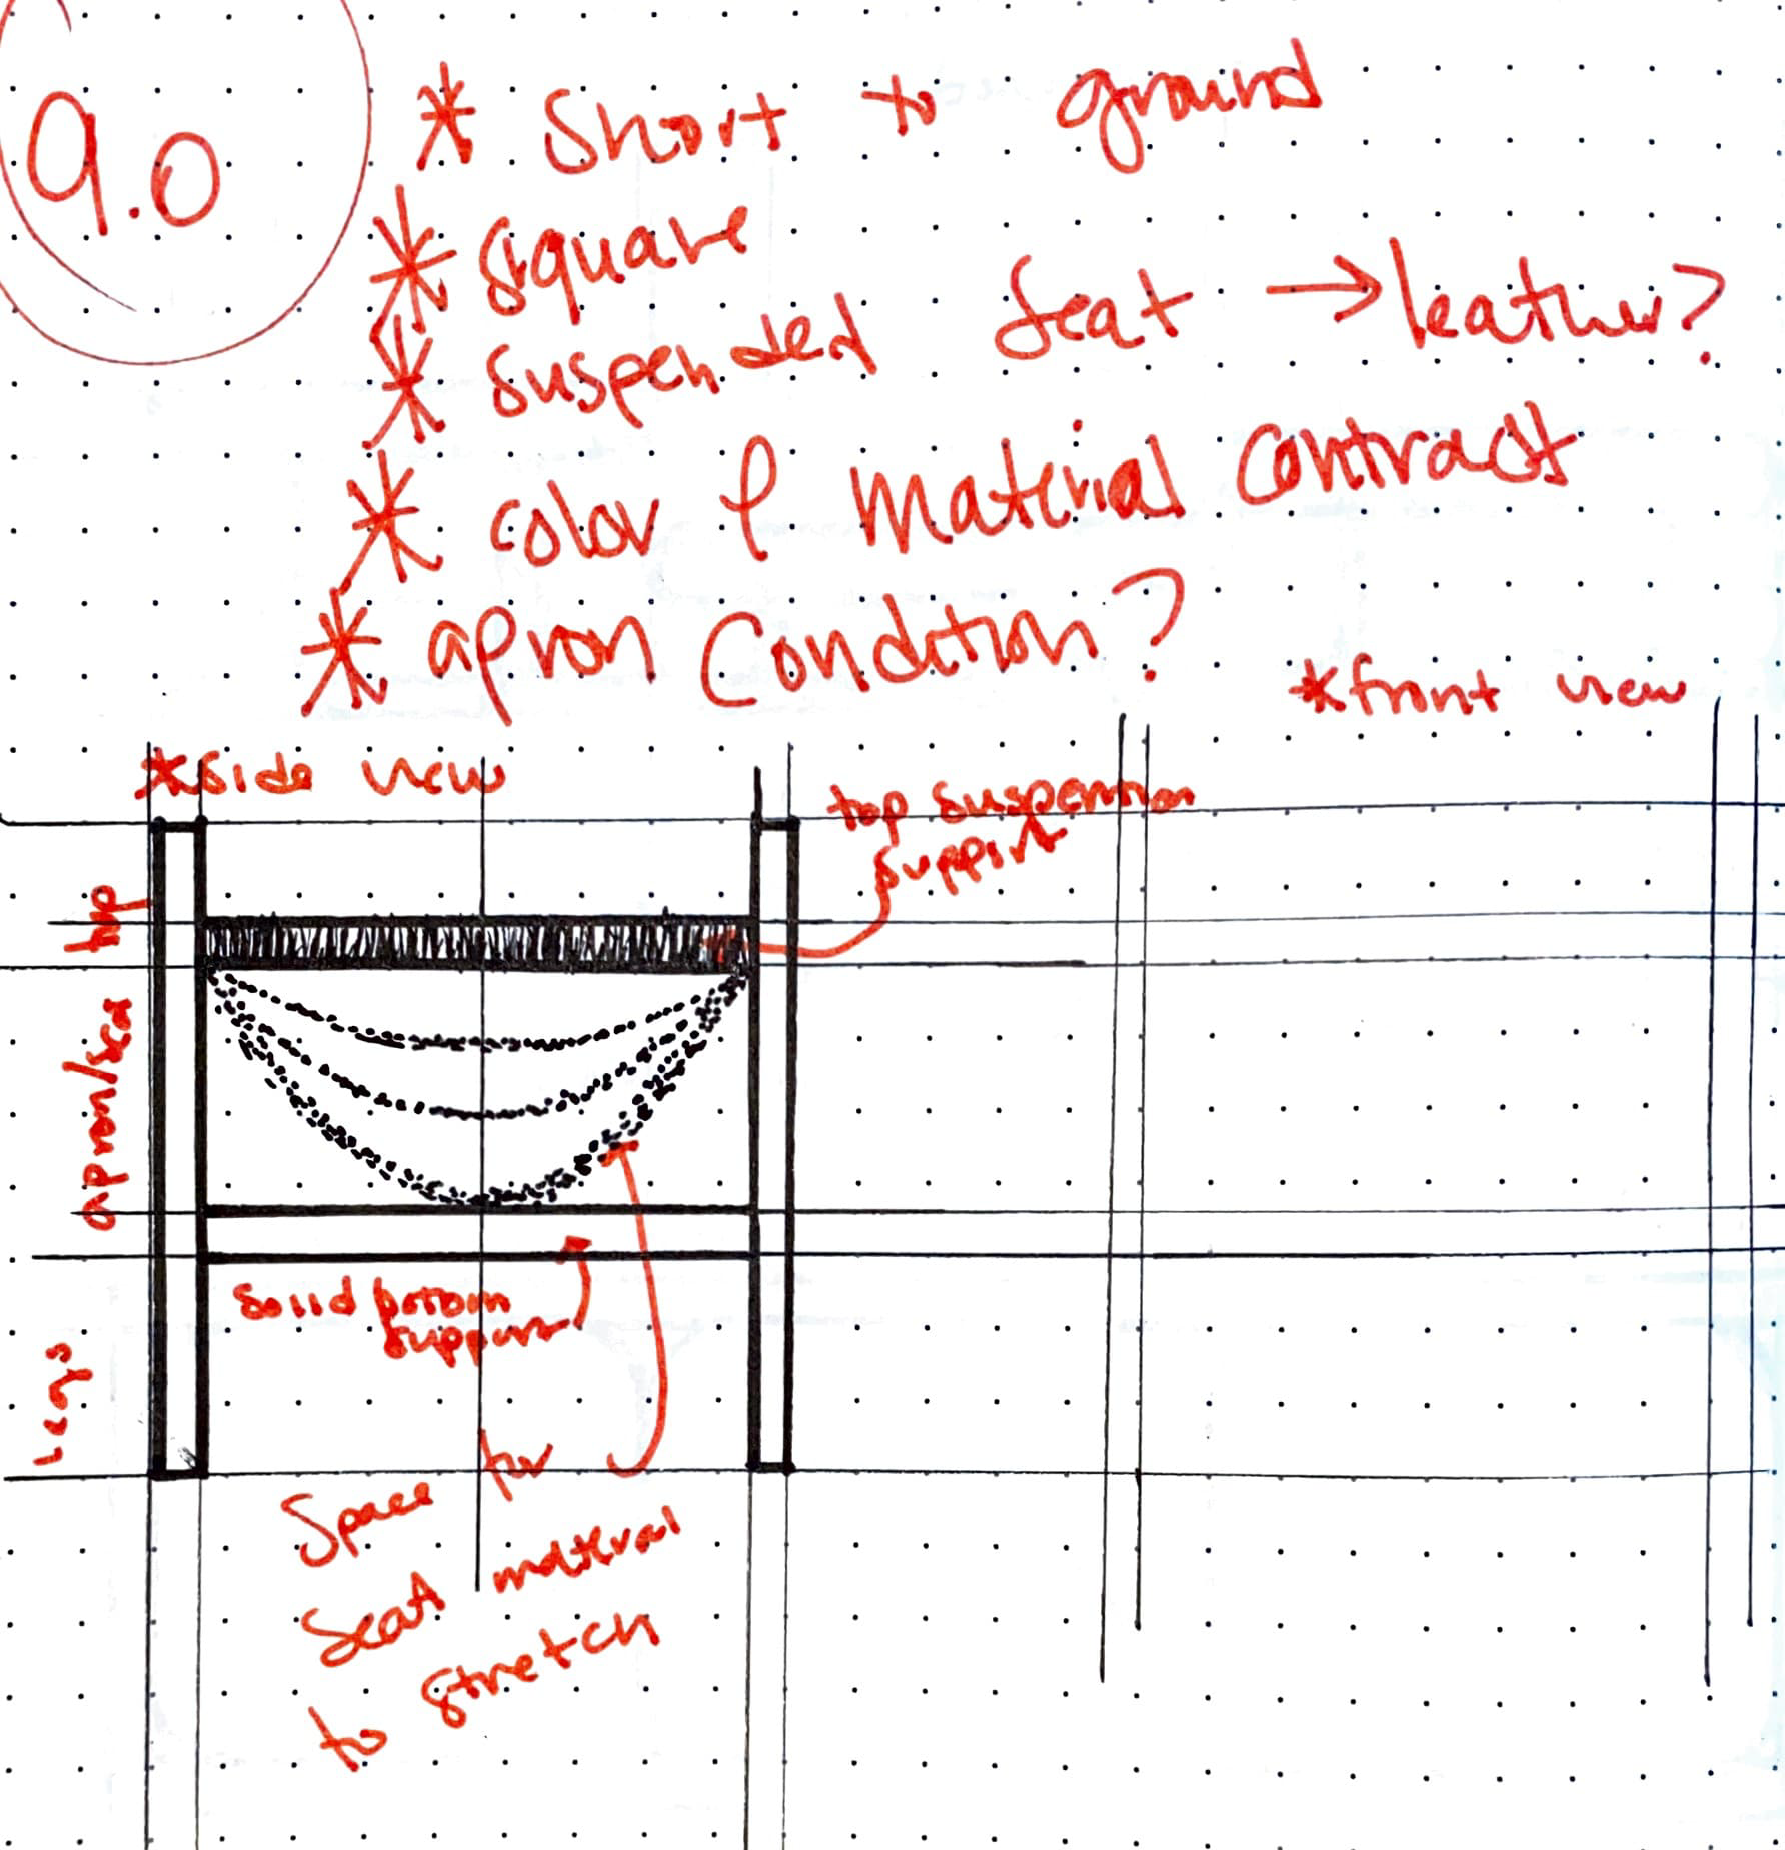 9.0
* Short to ground
* Square
* Suspended Seat → leather?
* color & Material Contract
* apron Condition?
*front view
*side view
top suspension
support
top
apron/seat
solid bottom
support
Legs
Space for
Seat material
to stretch